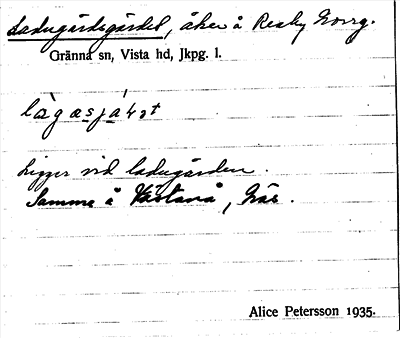 Ladugårdsgärdet, åker å Reaby Norrg.
Gränna sn, Vista hd, Jkpg. l.
Ligger vid ladugården.
Samma å Västanå, Grä.
Alice Petersson 1935.